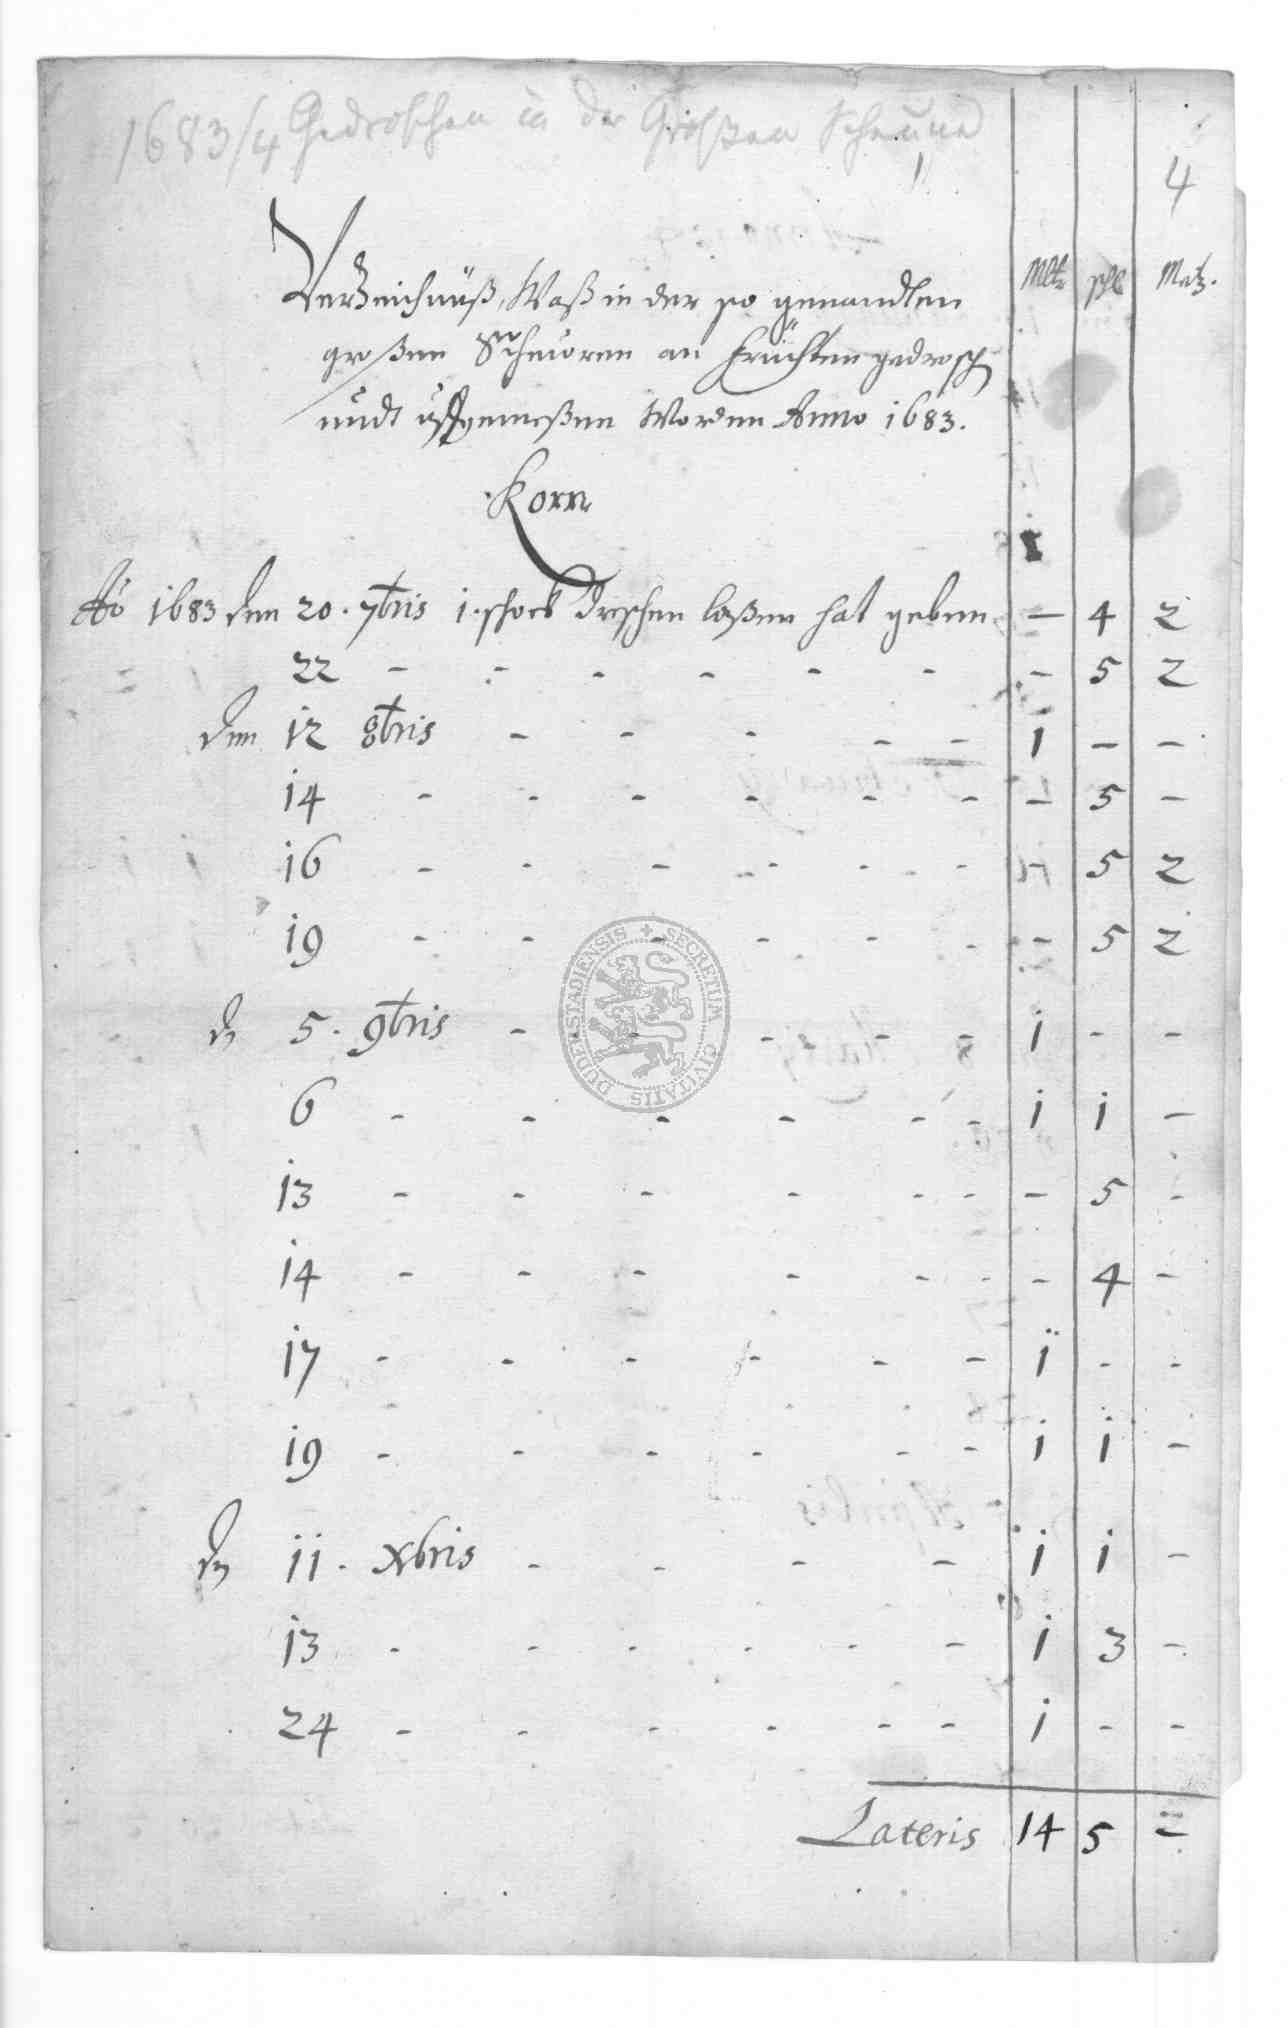 1683/4 Gedroschen in der Großen Scheune
4
Mltr schl Metz.
Verzeichnüß, Waß in der so genandten
großen Scheuren an Früchten gedrosch
undt ufgemeßen Worden Anno 1683.
Korn
Aō 1683 den 20. 7bris 1. schock dreschen laßen hat geben — 4 2
22 - - - - - - - 5 2
den 12 8bris - - - - - 1 - -
14 - - - - - - - 5 -
16 - - - - - - - 5 2
19 - - - - - - - 5 2
d 5. 9bris - - - - - 1 - -
6 - - - - - - 1 1 -
13 - - - - - - - 5 -
14 - - - - - - - 4 -
17 - - - - - - 1 - -
19 - - - - - - 1 1 -
d 11. Xbris - - - - 1 1 -
13 - - - - - - 1 3 -
24 - - - - - - 1 - -
Lateris 14 5 -
SECRETUM CIVITATIS DUDERSTADIENSIS